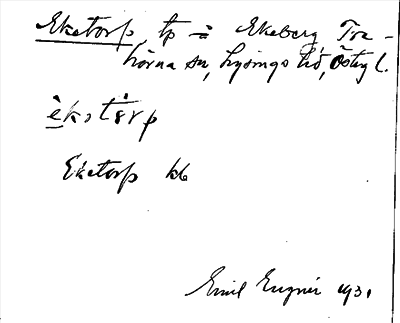 Eketorp, tp å Ekeberg Tra-
hörna sn, Lysings hd, Östg l.
èkstòrp
Eketorp kb
Emil Eugnér 1931